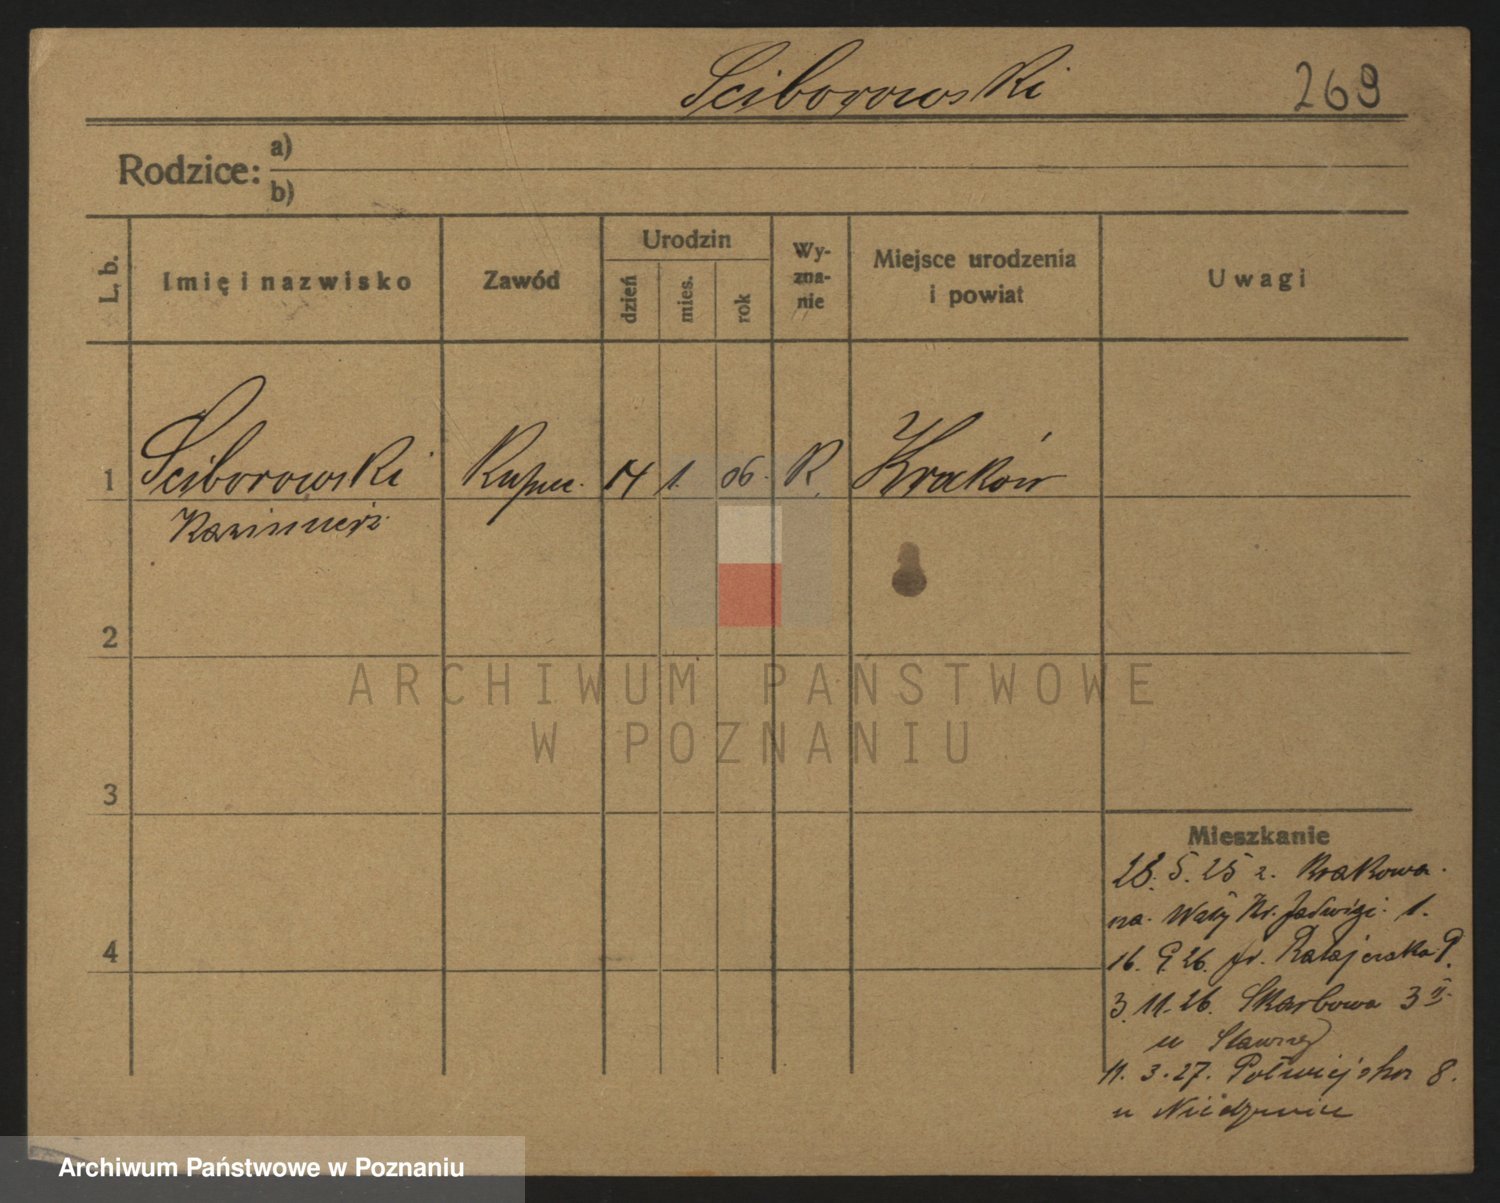 Sciborowski 269
Rodzice: a)
b)
L. b. Imię i nazwisko Zawód Urodzin dzień mies. rok Wy-zna-nie Miejsce urodzenia i powiat Uwagi
1 Sciborowski Kupiec 14 1. 06. R. Kraków
Kazimierz
2
ARCHIWUM PAŃSTWOWE
W POZNANIU
3
Mieszkanie
28. 5. 25 z. Krakowa.
na Wały Kr. Jadwigi. 1.
4
16. 9. 26. Ratajczaka 9.
3. 11. 26. Skarbowa 3 II
u
11. 3. 27. Półwiejska 8.
u
Archiwum Państwowe w Poznaniu